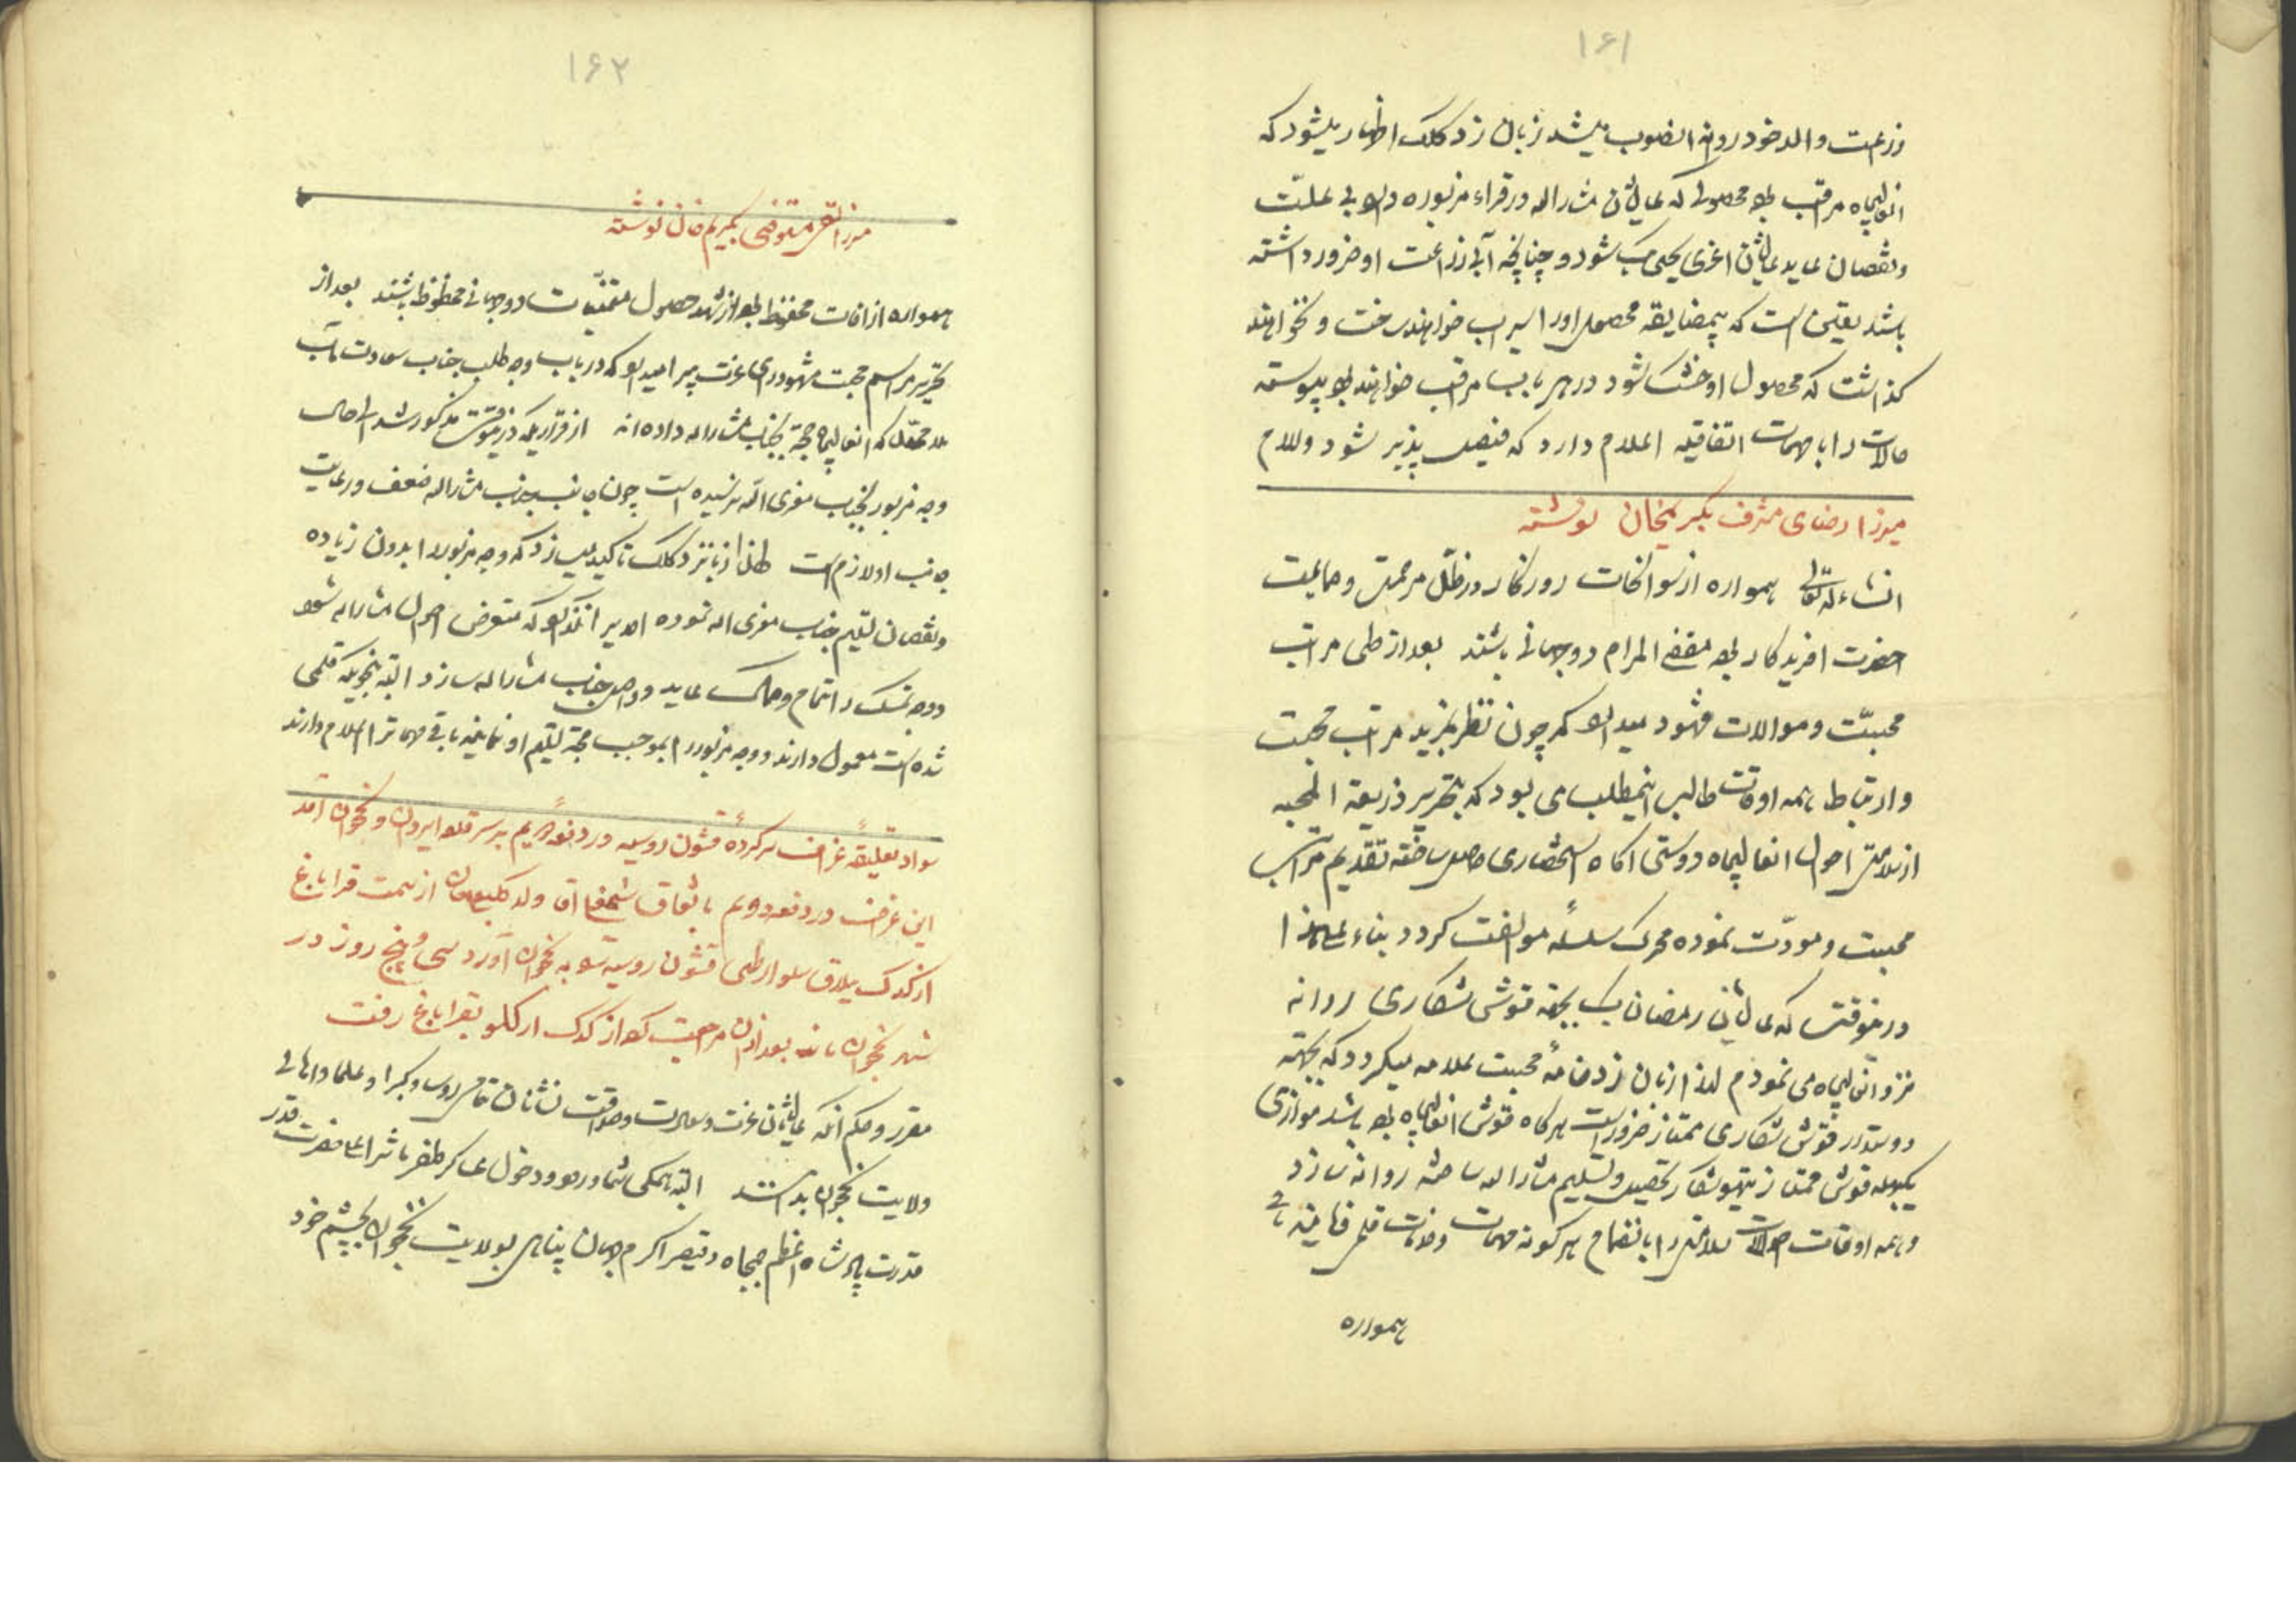 ۱۶۱
زراعت والد خود روانه انصوب میشد زبان زد کلک اظهار میشود که
انعالیجاه مراقب بوده محصولی که عالیشان مشارالیه در قراء مزبوره دارد بی علت
ونقصان نماید عالیشان اغزی یحیی بیک شود و چنانچه آبی زراعت او ضرور داشته
باشد یقین است که بیمضایقه محصول اورا سیراب خواهند ساخت و نخواهند
گذاشت که محصول او خشک شود در هر باب مراقب خواهند بود پیوسته
حالات را با مهمات اتفاقیه اعلام دارد که فیصل پذیر شود والسلام
میرزا رضای مشرف بکریمخان نوشته
انشاءالله تعالی همواره از سوانحات روزگار در ظل مرحمت و حمایت
حضرت افریدگار بوده مقضی المرام دوجهانی باشند بعد از طی مراتب
محبت و موالات مشهود میدارد که چون نظر بمزید مراتب محبت
وارتباط همه اوقات طالب اینمطلب می بود که بتحریر ذریعة المحبه
از سلامتی احوال انعالیجاه دوستی اگاه استحضاری حاصل ساخته تقدیم مراتب
محبت و مودّت نموده محرک سلسلهٔ موالفت گردد بناء علیهذا
درینوقت که عالیشان رمضان بیک بجهة قوش شکاری روانه
نزد انعالیجاه می نمودم لهذا زبان زد خامهٔ محبت علامه میگردد که بجهته
دوستدار قوش شکاری ممتاز ضرور است هرگاه قوش انعالیجاه بوده باشد موازی
یکبهله قوش ممتاز تیهو شکار تحصیل و تسلیم مشارالیه ساخته روانه سازد
وهمه اوقات حالات سلامتی را بانضمام هرگونه مهمات وخدمات قلمی فرمایند
همواره
۱۶۲
میرزا تقی مستوفی بکریم خان نوشته
همواره از افات محفوظ بوده از شهد حصول متمنیات دوجهانی محظوظ باشند بعد از
تحریر مراسم محبت مشهود رای عزت پیرا میدارد که در باب وجه طلب جناب سعادت مآب
که انعالیجاه حجة بجناب مشارالیه داده اند از قراریکه درینوقت مذکور شد الی حال
وجه مزبور بجناب معزی الیه نرسیده است چون جانب جناب مشارالیه ضعف ورعایت
جانب او لازم است لهذا زبانزد کلک تاکید میسازد که وجه مزبور را بدون زیاده
ونقصان تسلیم جناب معزی الیه نموده که متعرض احوال مشارالیه شود
ووجه تمسک را تمام وکمال نماید و واصل جناب مشارالیه سازد البته بنحویکه قلمی
شده است معمول دارند ووجه مزبور را بموجب حجة تسلیم او نمایند باقی مهمات را اعلام دارند
سواد تعلیقهٔ غراف سرکردهٔ قشون روسیه در دفعه دویم بر سر قلعه ایروان و نخجوان آمد
این غراف در دفعه دویم باتفاق شیخعلی آقا ولد کلبعلیخان از سمت قراباغ
از گدک ییلاق سلوارطی قشون روسیه به نخجوان آورد سی و پنج روز در
شهر نخجوان ماند بعد از ان مراجعت کرد از گدک بقراباغ رفت
مقرر و حکم آنکه عالیشانان عزت و سعادت وصداقت نشانان تمامی روسا وکبرا وعلما واهالی
ولایت نخجوان بدانند البته همگی شما ورود ودخول عساکر ظفر ماثر اعلیحضرت قدر
قدرت پادشاه اعظم جمجاه و قیصر اکرم جهان پناهی بولایت نخجوان بچشم خود